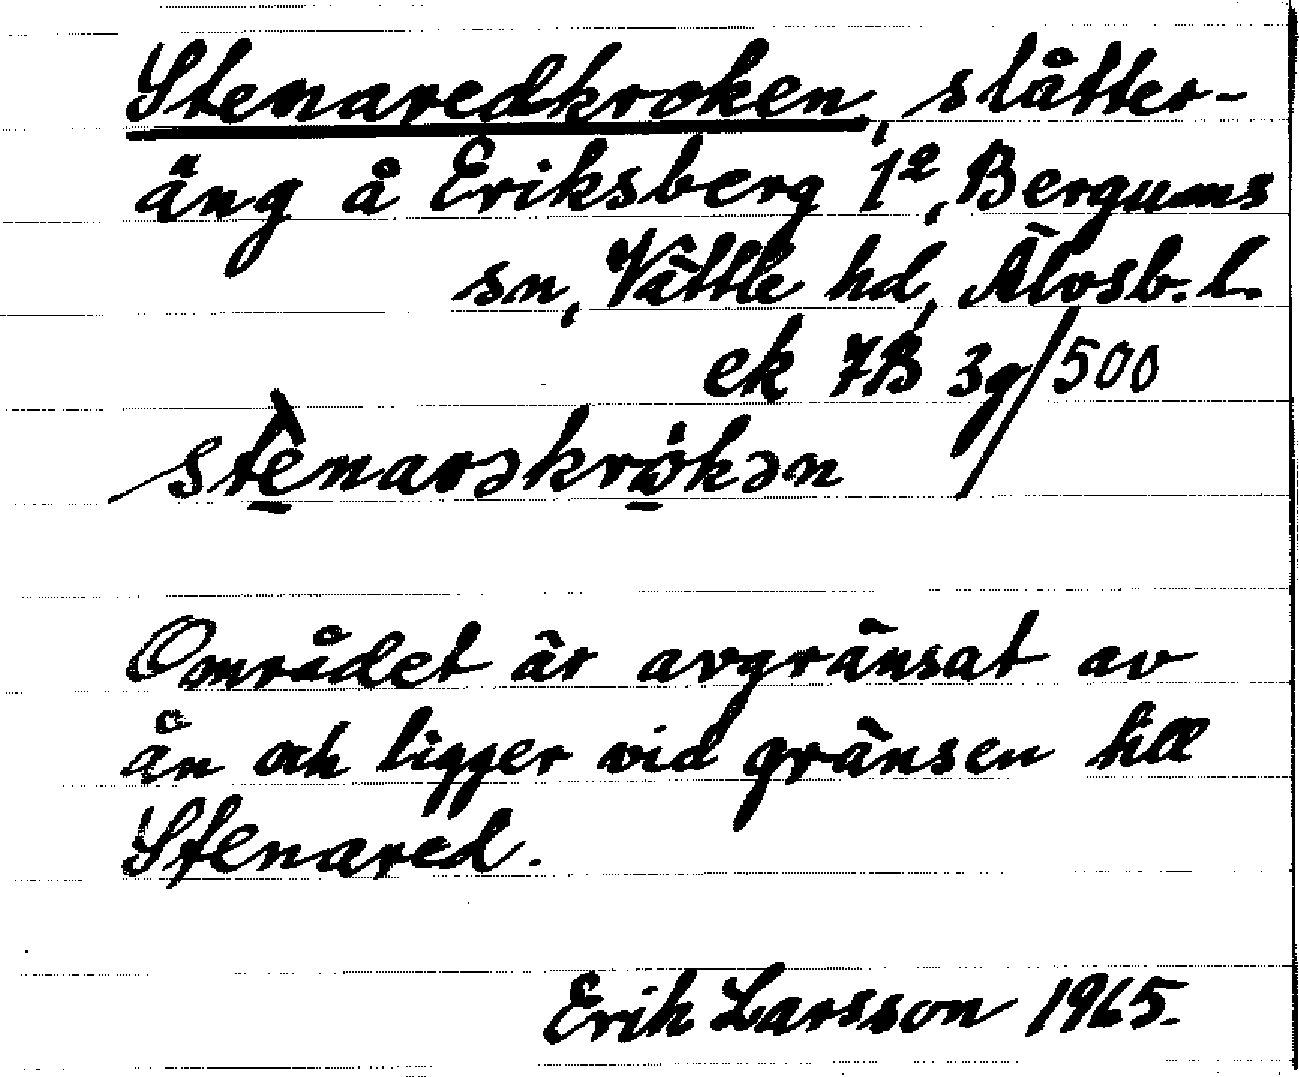 Stenaredkroken, slåtter-
äng å Eriksberg 1², Bergums
sn, Vättle hd, Älvsb. l.
ek 7B 3g/500
stènarəkrὠkən
Området är avgränsat av
ån och ligger vid gränsen till
Stenared.
Erik Larsson 1965.